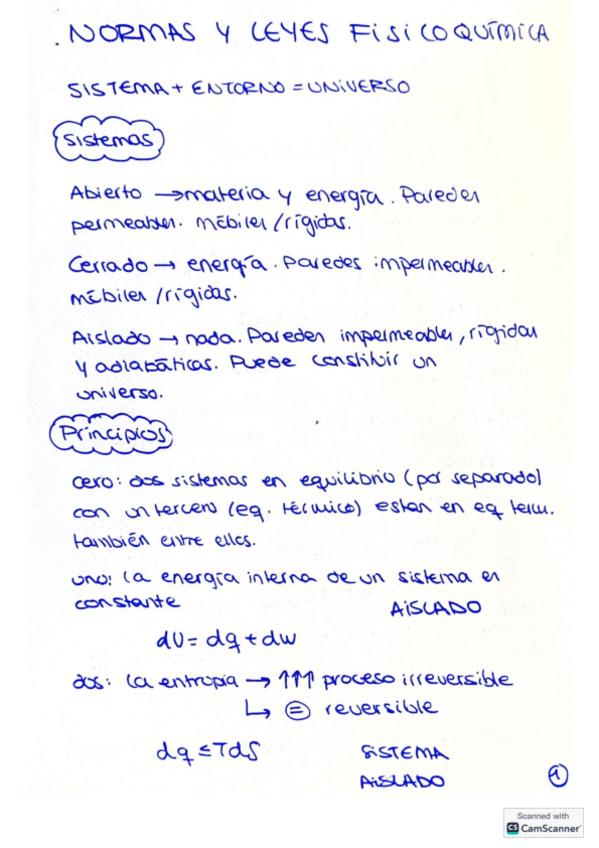 . NORMAS Y LEYES FISICOQUÍMICA
SISTEMA + ENTORNO = UNIVERSO
Sistemas
Abierto → materia y energía. Paredes
permeables. móbiles / rígidas.
Cerrado → energía. Paredes impermeables.
móbiles / rígidas.
Aislado → nada. Paredes impermeables, rígidas
y adiabáticas. Puede constibir un
universo.
Principios
cero: dos sistemas en equilibrio (por separado)
con un tercero (eq. térmico) estan en eq term.
también entre ellos.
uno: la energía interna de un sistema es
constante AISLADO
dU = dq + dw
dos: la entropia → ↑↑↑ proceso irreversible
↳ = reversible
dq ≤ TdS SISTEMA
AISLADO
1
Scanned with
CS CamScanner